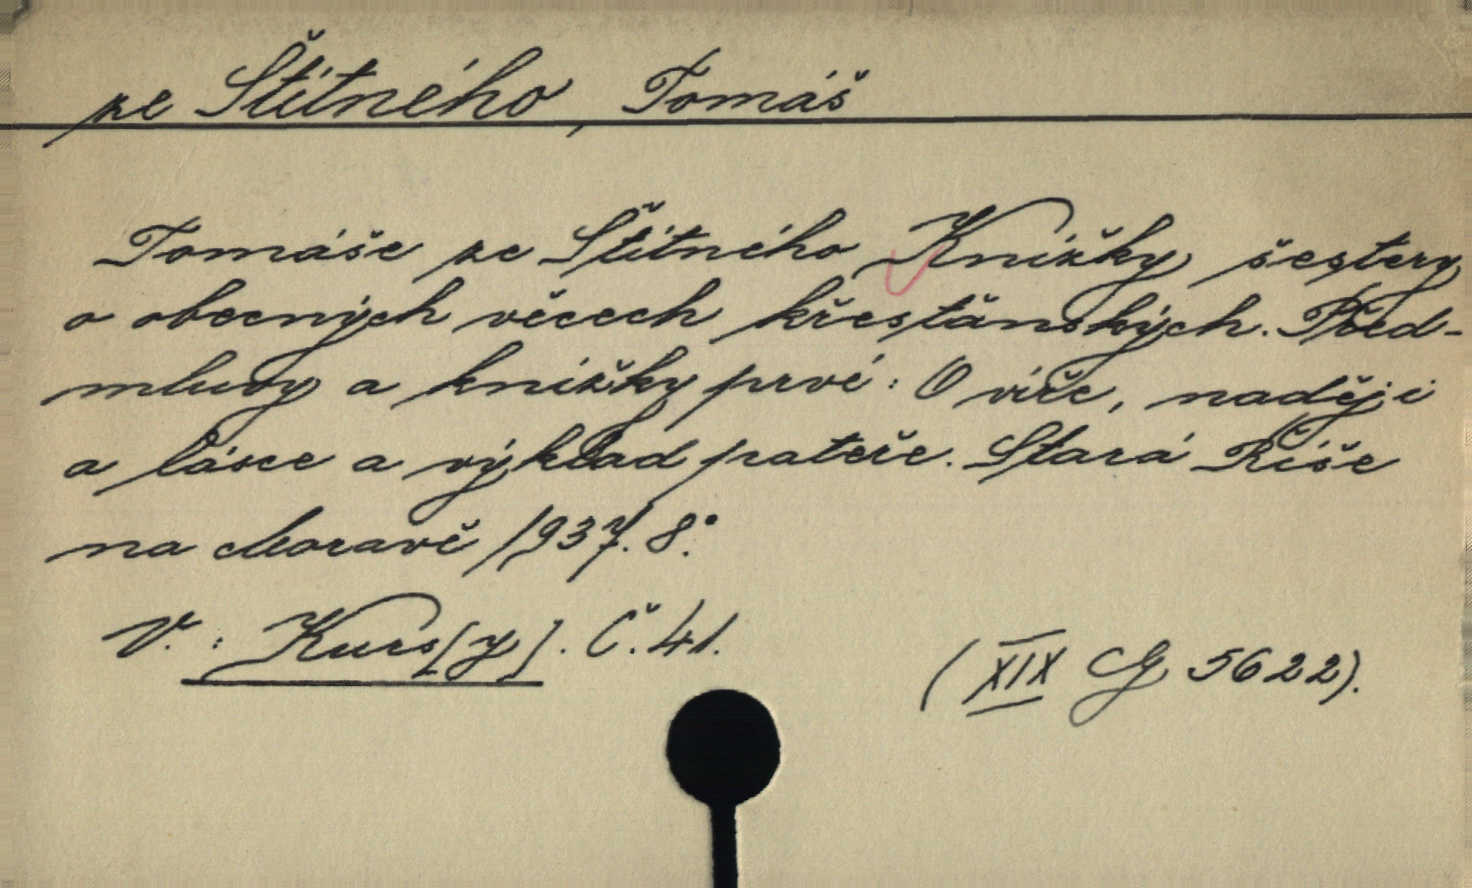 ze Štítného, Tomáš
Tomáše ze Štítného Knížky šestery
o obecných věcech křesťanských. Před-
mluvy a knížky prvé: O víře, naději
a lásce a výklad páteře. Stará Říše
na Moravě 1937. 8°.
V.: Kurs[y]. Č. 41.
(XIX G 5622).